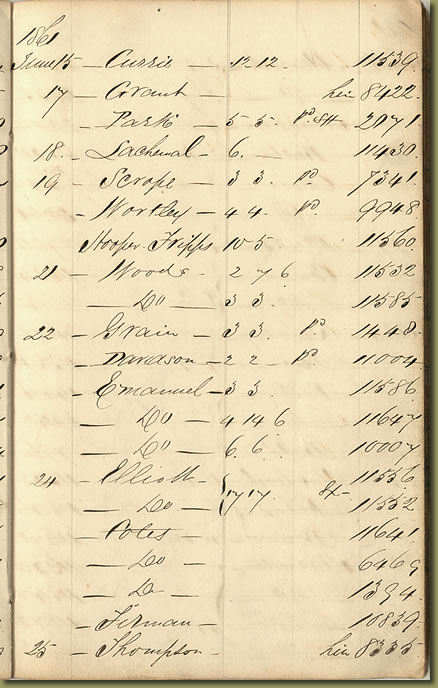 1861
June 15 — Currie — 12 12. 11539.
17 — Grant — 8422.
— Park — 5 5. Pd. 2071.
18. — Lachenal — 6. — 11430.
19 — Scrope — 3 3. Pd. 7341.
— Wortley — 4 4. Pd. 9948
Hooper. Fripps 10 5. 11560.
21 — Woods - 2 7 6 11532
— Do — 3 3. 11585.
22 — Grain — 3 3. Pd. 11448.
— Davidson — 2 2 Pd. 11004.
— Emanuel — 3 3 11586.
— Do — 4 14 6 11647
— Do — 6. 6. 10007
24 — Elliott — 11556.
— Do — 17 17 11552
— Coles — 11641
— Do — 6469
— Do — 1394.
— Firman — 10839.
25 — Thompson — 8335